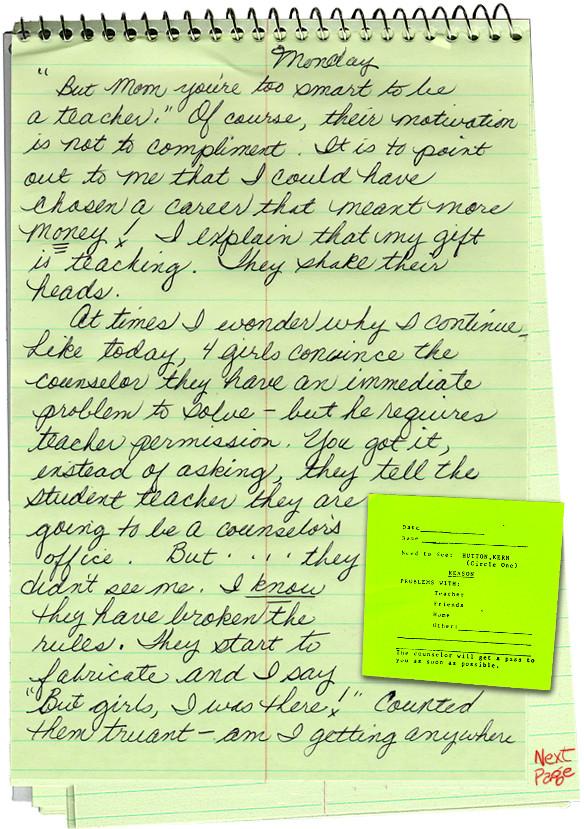 Monday
"But Mom you're too smart to be
a teacher." Of course, their motivation
is not to compliment. It is to point
out to me that I could have
chosen a career that meant more
money! I explain that my gift
is teaching. They shake their
heads.
At times I wonder why I continue.
Like today, 4 girls convince the
counselor they have an immediate
problem to solve - but he requires
teacher permission. You got it,
instead of asking, they tell the
student teacher they are
going to be a counselor's
office. But . . . . they
didn't see me. I know
they have broken the
rules. They start to
fabricate and I say
"But girls, I was there!" Counted
them truant - am I getting anywhere
Date
Name
Need to See: HUTTON, KERN
(Circle One)
REASON
PROBLEMS WITH:
Teacher
Friends
Home
Other:
The counselor will get a pass to
you as soon as possible.
Next
Page